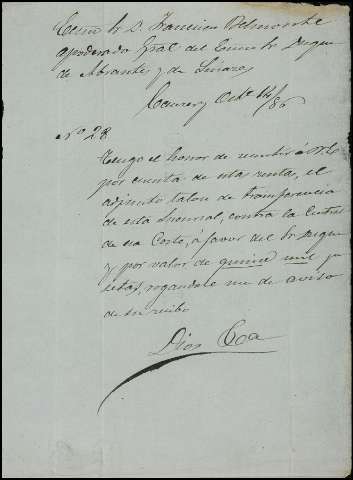 Excmo Sr D. Francisco Belmonte
apoderado Gral del Excmo Sr Duque
de Abrantes y de Linares
Caceres Octe 14/86
Nº 28
Tengo el honor de remitir á
por cuenta de estas rentas, el
adjunto talon de transferencia
de esta Sucursal, contra la Central
de esa Corte, á favor del Sr Duque
y por valor de quince mil pe
setas, rogandole me de aviso
de su recibo
Dios